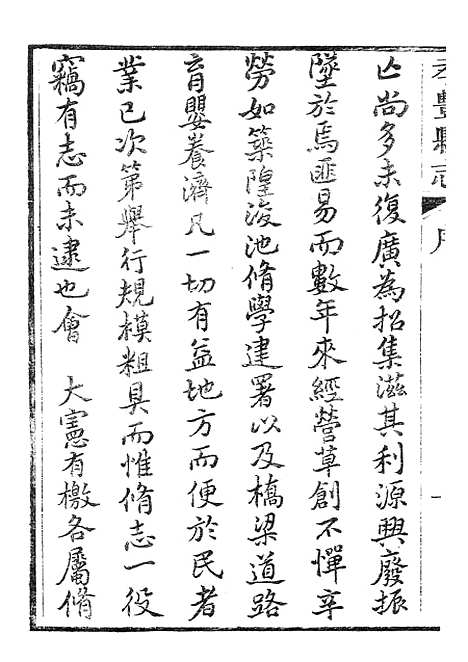 孝豐縣志 序 一
亡尚多未復廣為招集滋其利源興廢振
墜於焉匪易而數年來經營草創不憚辛
勞如築隍浚池脩學建署以及橋梁道路
育嬰養濟凡一切有益地方而便於民者
業已次第舉行規模粗具而惟脩志一役
竊有志而未逮也會 大憲有檄各屬脩